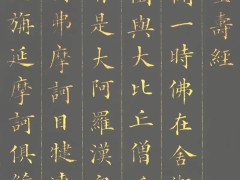 壽經
聞一時佛在舍
園與大比丘僧
是大阿羅漢
弗摩訶目犍連
旃延摩訶俱